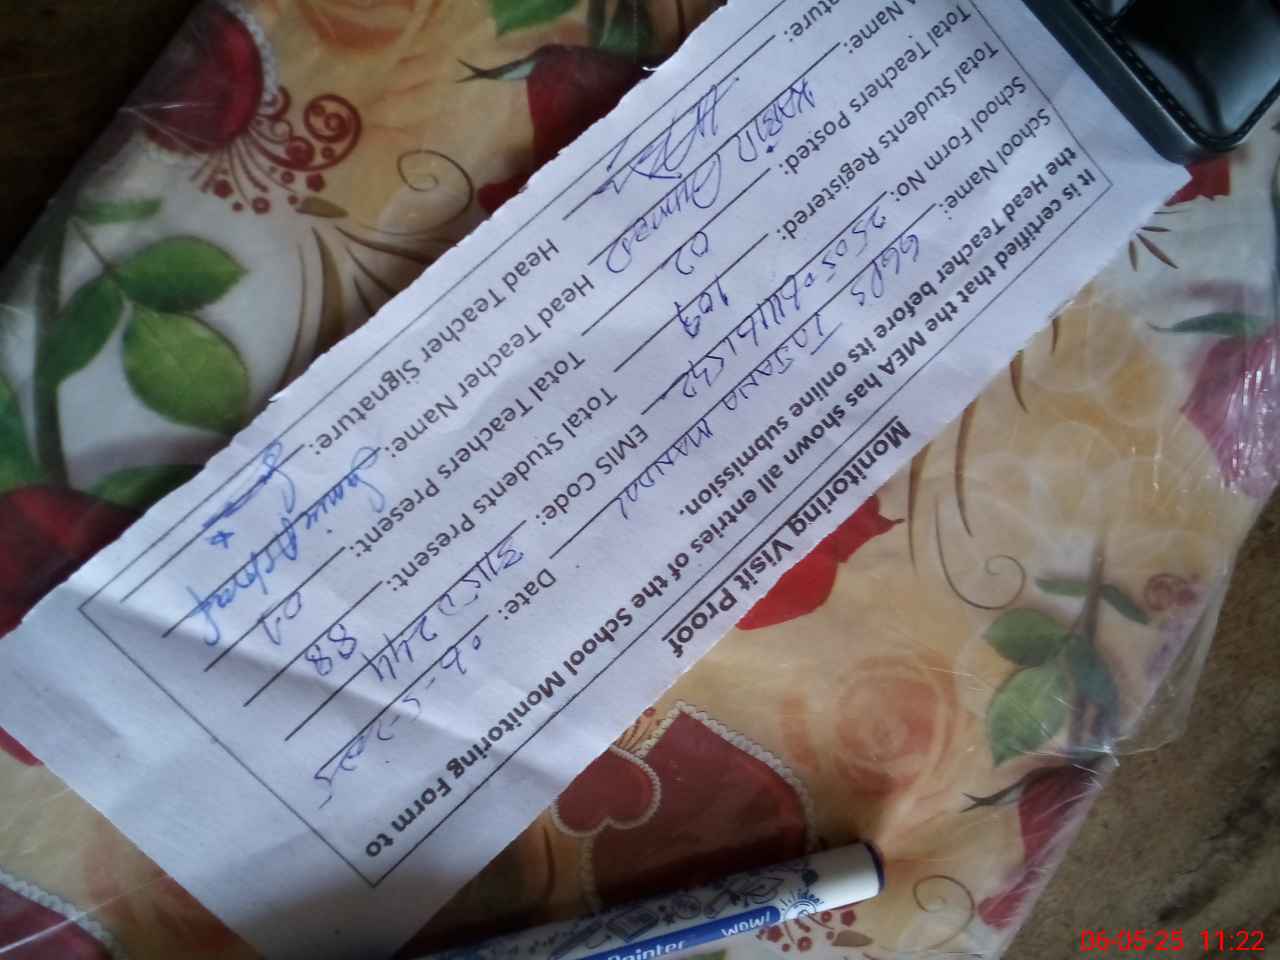 Monitoring Visit Proof
It is certified that the MEA has shown all entries of the School Monitoring Form to
the Head Teacher before its online submission.
School Name: GGPS MANDAL Date: 06-5-2025
School Form No: EMIS Code:
Total Students Registered: 107 Total Students Present: 88
Total Teachers Posted: 02 Total Teachers Present:
A Name: KABIR AHMED Head Teacher Name: Samia Ashraf
ature: Head Teacher Signature:
Pointer WOW!
06-05-25 11:22